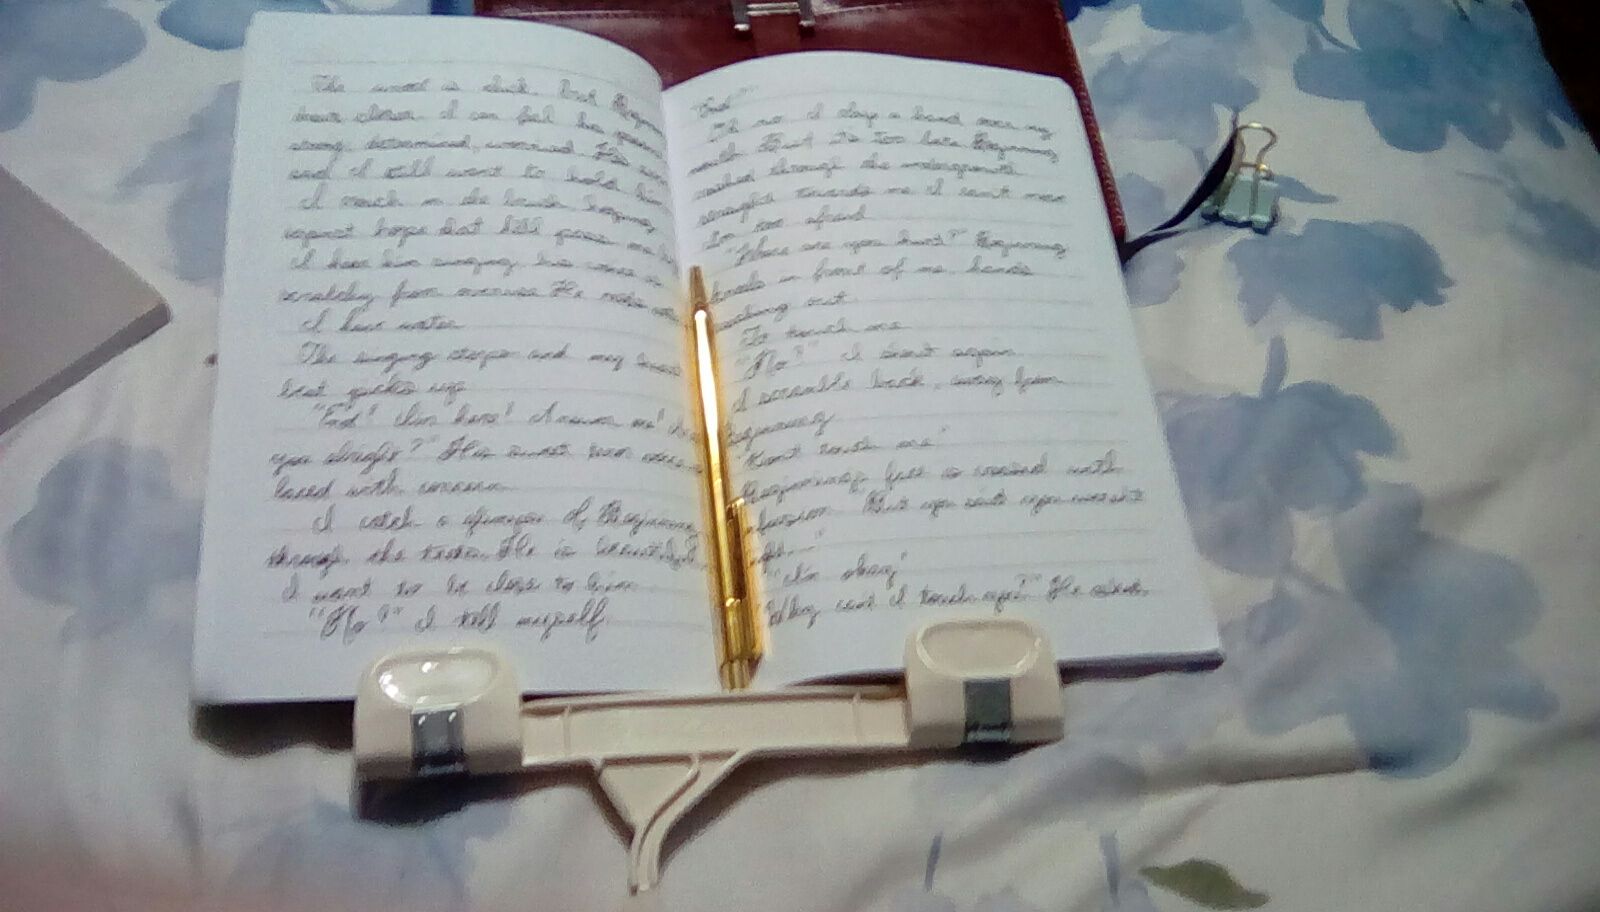 The wood is thick, but Beginning
draws closer. I can feel his
strong, determined, worried. He
and I still want to hold him
I crouch in the brush, hoping
against hope that he'll pass me
I hear him singing, his voice is
scratchy from overuse. He
I hear water
The singing stops and my heart
beat
"End! I'm here! Answer me! Are
you alright?" His sweet
laced with concern.
I catch a glimpse of Beginning
through the trees. He is beautiful
I want to be close to him
"No!" I tell myself.
"End"
Oh no. I clasp a hand over my
mouth. But I'm too late. Beginning
through the undergrowth
straight towards me. I can't move
I'm too afraid
"Where are you hurt?" Beginning
kneels in front of me, hands
reaching out
To touch me
"No!" I shout again
I scramble back, away from
Beginning
"Don't touch me"
Beginning's face is creased with
confusion. "But you said you weren't
"I'm okay"
"Why can't I touch you?" He asks.